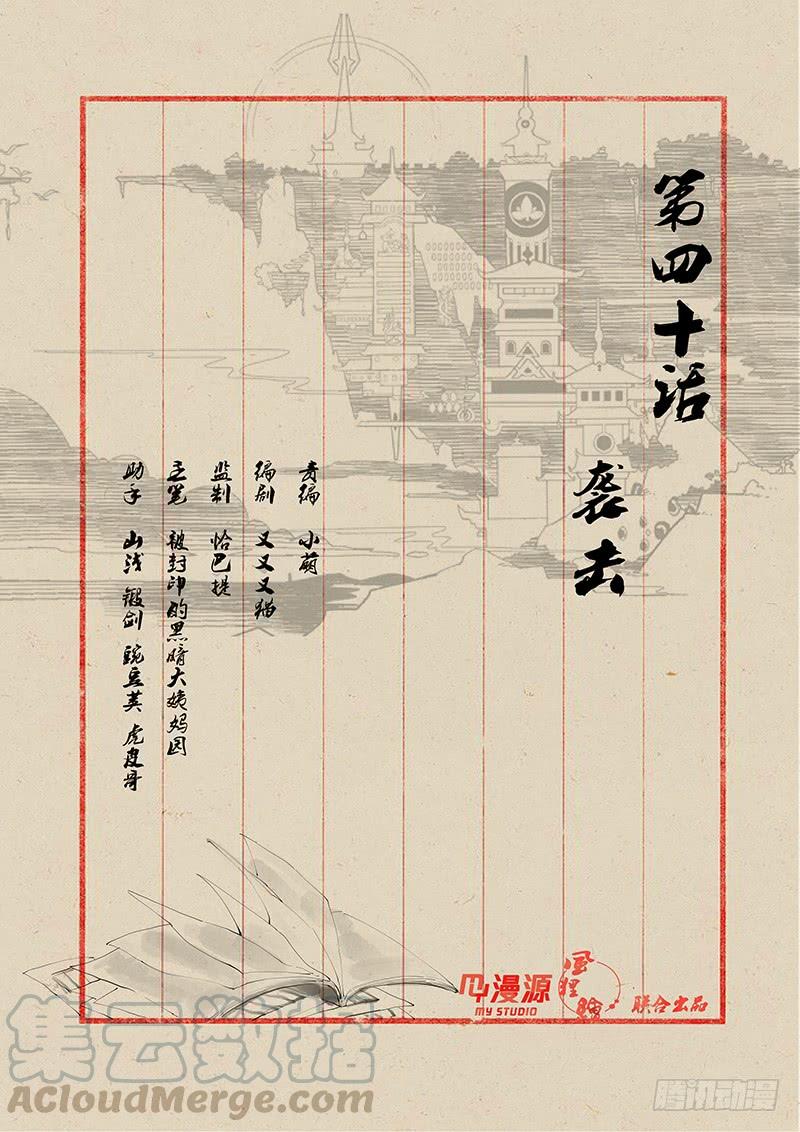 第四十话
袭击
责编 小萌
编剧 又又又猫
监制 恰巴提
主笔 被封印的黑暗大姨妈园
助手 山浅 锻剑 豌豆荚 虎皮哥
漫源
MY STUDIO
联合出品
集云数据
ACloudMerge.com
腾讯动漫